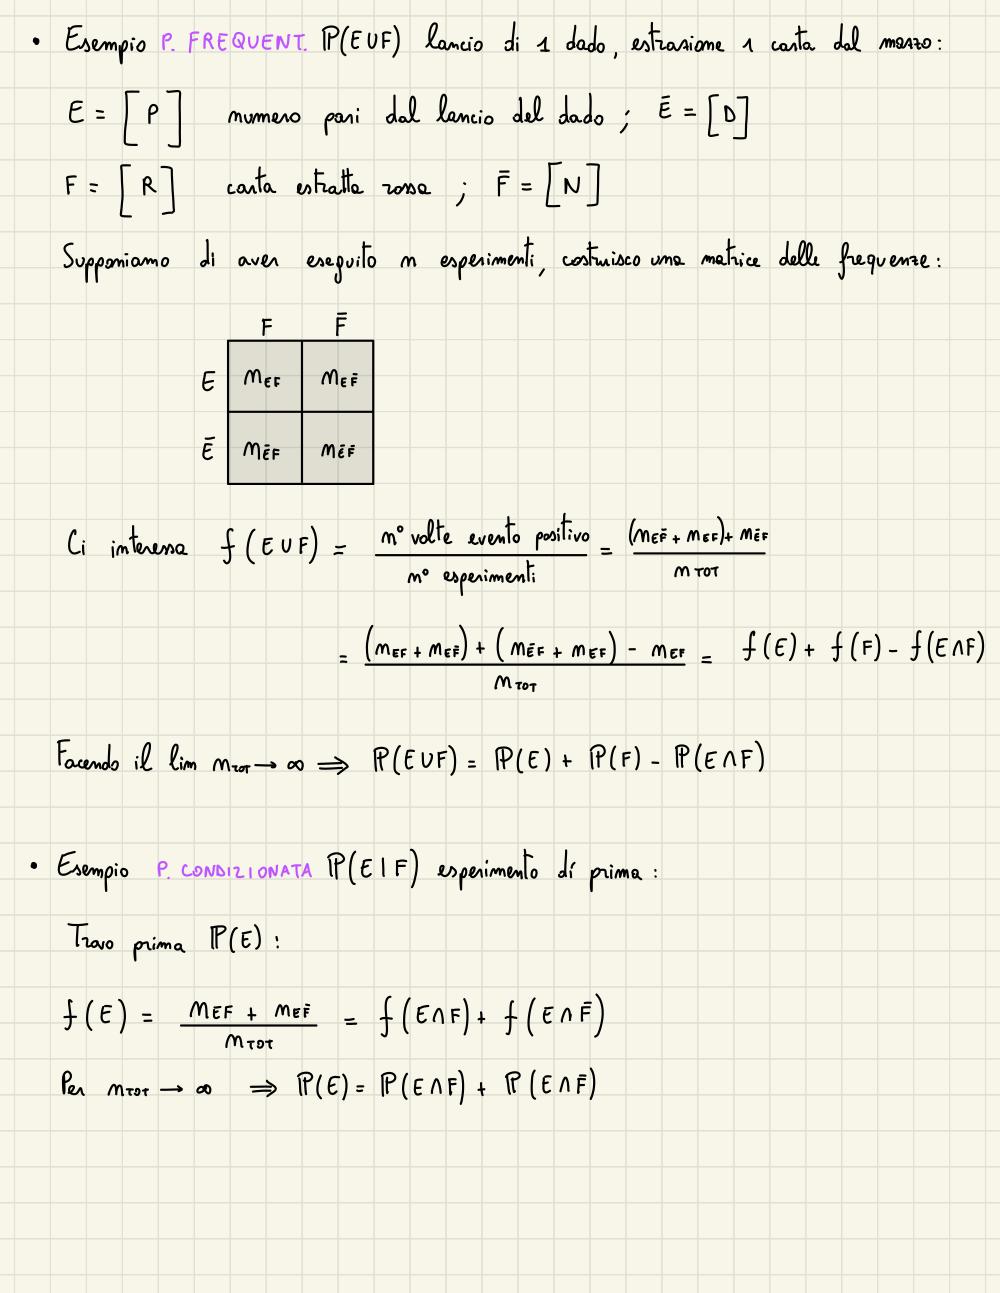 • Esempio P. FREQUENT. ℙ(E∪F) lancio di 1 dado, estrazione 1 carta dal mazzo:
E = [P] numero pari dal lancio del dado ; Ē = [D]
F = [R] carta estratta rossa ; F̄ = [N]
Supponiamo di aver eseguito n esperimenti, costruisco una matrice delle frequenze:
F F̄
E n_EF n_EF̄
Ē n_ĒF n_ĒF̄
Ci interessa f(E∪F) = n° volte evento positivo / n° esperimenti = (n_EF̄ + n_EF) + n_ĒF / n_TOT
= (n_EF + n_EF̄) + (n_ĒF + n_EF) - n_EF / n_TOT = f(E) + f(F) - f(E∩F)
Facendo il lim n_TOT → ∞ ⇒ ℙ(E∪F) = ℙ(E) + ℙ(F) - ℙ(E∩F)
• Esempio P. CONDIZIONATA ℙ(E|F) esperimento di prima:
Trovo prima ℙ(E):
f(E) = n_EF + n_EF̄ / n_TOT = f(E∩F) + f(E∩F̄)
Per n_TOT → ∞ ⇒ ℙ(E) = ℙ(E∩F) + ℙ(E∩F̄)